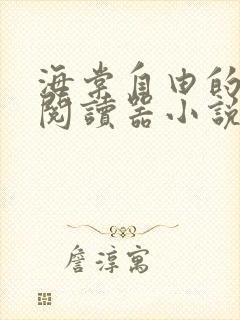 海棠自由的
閱讀器小說
詹淳寓